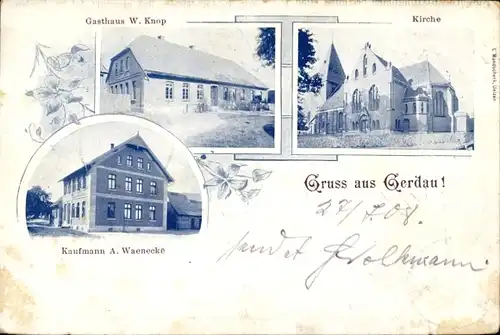 Gasthaus W. Knop
Kirche
Kaufmann A. Waenecke
Gruss aus Gerdau!
27/7 08.
sendet